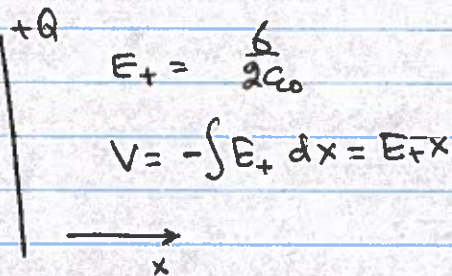 +Q
E₊ = σ / 2ε₀
V = -∫E₊ dx = E₊x
x